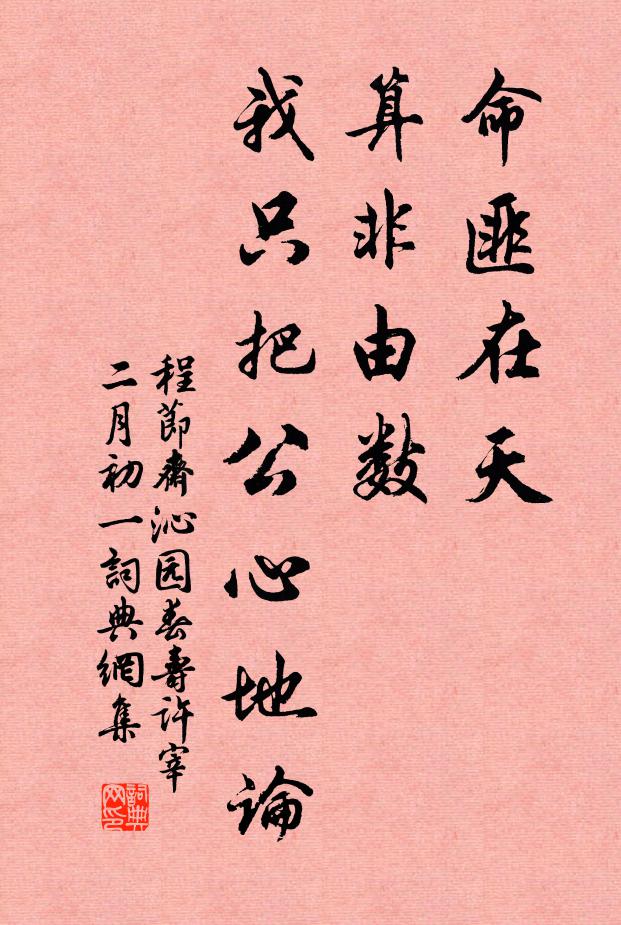 命匪在天
算非由数
我只把公心地论
程節齋沁园春壽许宰
二月初一詞典網集
詞典网印